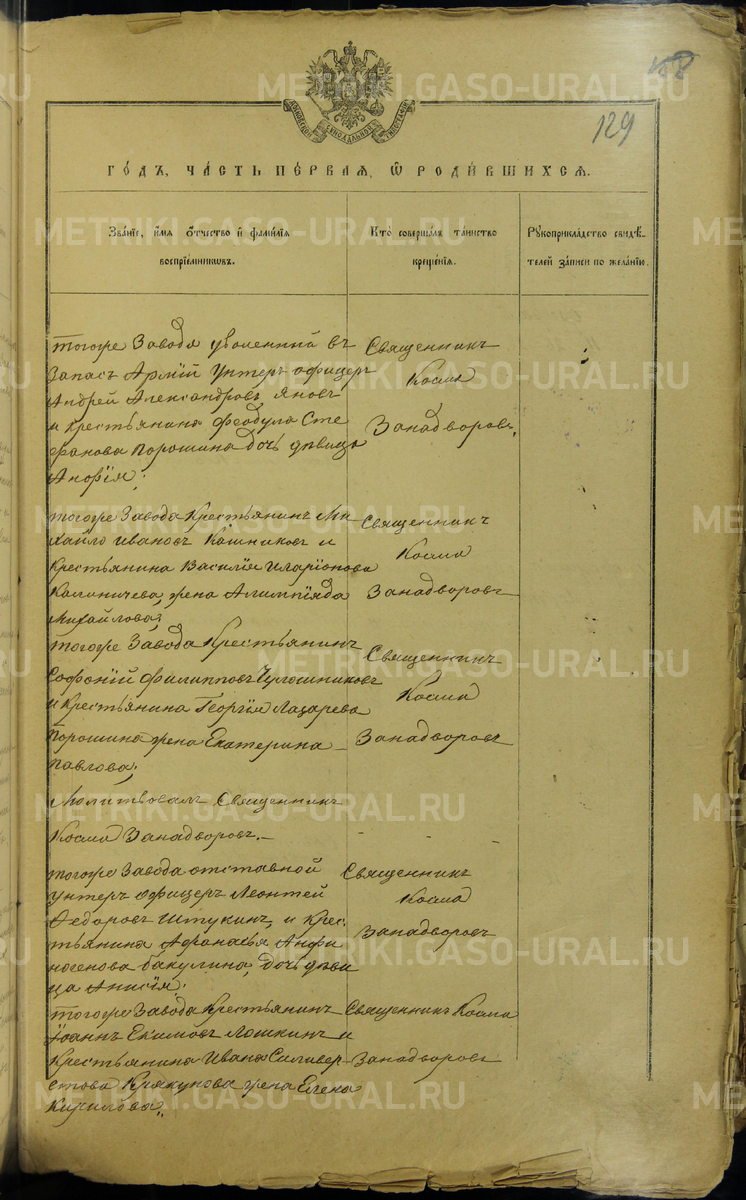 158
129
МОСКОВСКОЙ СѴНОДАЛЬНОЙ ТИПОГРАФІИ
ГО́ДЪ, ЧА́СТЬ ПЕ́РВАЯ, Ѿ РОДИ́ВШИХСЯ.
Зва́ніе, и́мя о́тчество и фами́лія
воспріе́мниковъ.
Кто̀ соверша́лъ та́инство
креще́нія.
Рꙋкоприкла́дство свидѣ́-
телей за́писи по жела́нію.
тогоже Завода уволенный въ
Запасъ Армій Унтеръ офицеръ
Андрей Александровъ Яновъ
и крестьянина Феодула Сте
фанова Порошина дочь дѣвица
Священникъ
Косма
Занадворовъ.
тогоже Завода Крестьянинъ Ми
хайло Ивановъ Кошниковъ и
Крестьянина Василія Иларіонова
Калиничева, жена Алимпіяда
Михайлова;
Священникъ
Косма
Занадворовъ
тогоже Завода Крестьянинъ
Софоній Филипповъ Чулошниковъ
и Крестьянина Георгія Лазарева
Порошина жена Екатерина
Павлова;
Священникъ
Косма
Занадворовъ
Молитвовалъ Священникъ
Косма Занадворовъ.—
тогоже Завода отставной
унтеръ офицеръ Леонтей
Ѳедоровъ Штукинъ, и крес
тьянина Афонасья Анфи
ногенова Бакулина, дочь дѣви
ца Анисія;
Священникъ
Косма
Занадворовъ
тогоже Завода Крестьянинъ
Іоаннъ Екимовъ Лошкинъ и
Крестьянина Ивана Силивер
стова Крякунова жена Елена
Кирилова;
Священникъ Косма
Занадворовъ
METRIKI.GASO-URAL.RU